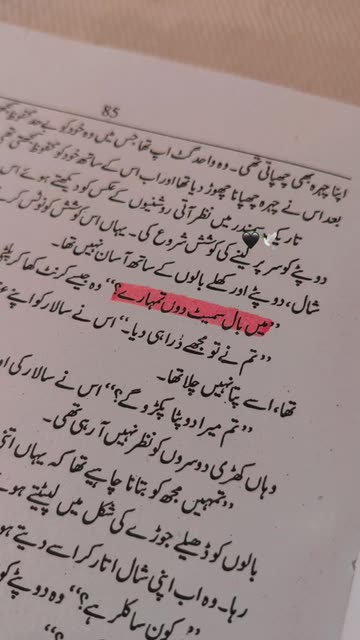 85
اپنا چہرہ بھی چھپاتی تھی۔ وہ واحد گٹ اپ تھا جس میں وہ خود کو بے حد محفوظ
بعد اس نے چہرہ چھپانا چھوڑ دیا تھا اور اب اس کے ساتھ خود کو
تاریک سمندر میں نظر آتی روشنیوں کے عکس کو دیکھتے ہوئے اس
دوپٹے کو سر پر لینے کی کوشش شروع کی۔ یہاں اس کوشش کو نوٹس
شال، دوپٹے اور کھلے بالوں کے ساتھ آسان نہیں تھا۔
"میں بال سمیٹ دوں تمہارے؟" وہ جیسے کرنٹ کھا کر
"تم نے تو مجھے ڈرا ہی دیا۔" اس نے سالار کو اپنے
تھا، اسے پتا نہیں چلا تھا۔
"تم میرا دوپٹا پکڑو گے؟" اس نے سالار کی
وہاں کھڑی دوسروں کو نظر نہیں آ رہی تھی۔
"تمہیں مجھ کو بتانا چاہیے تھا کہ یہاں اتنی
بالوں کو ڈھیلے جوڑے کی شکل میں لپیٹتے ہوئے
رہا۔ وہ اب اپنی شال اتار کر اسے دیتے
"کون سا کلر ہے؟" وہ دوپٹے کو